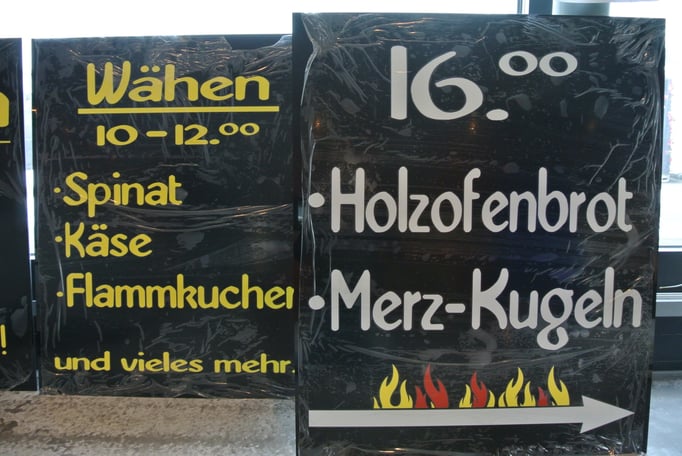 Wähen
10-12.00
·Spinat
·Käse
·Flammkuchen
und vieles mehr.
!
16.00
·Holzofenbrot
·Merz-Kugeln